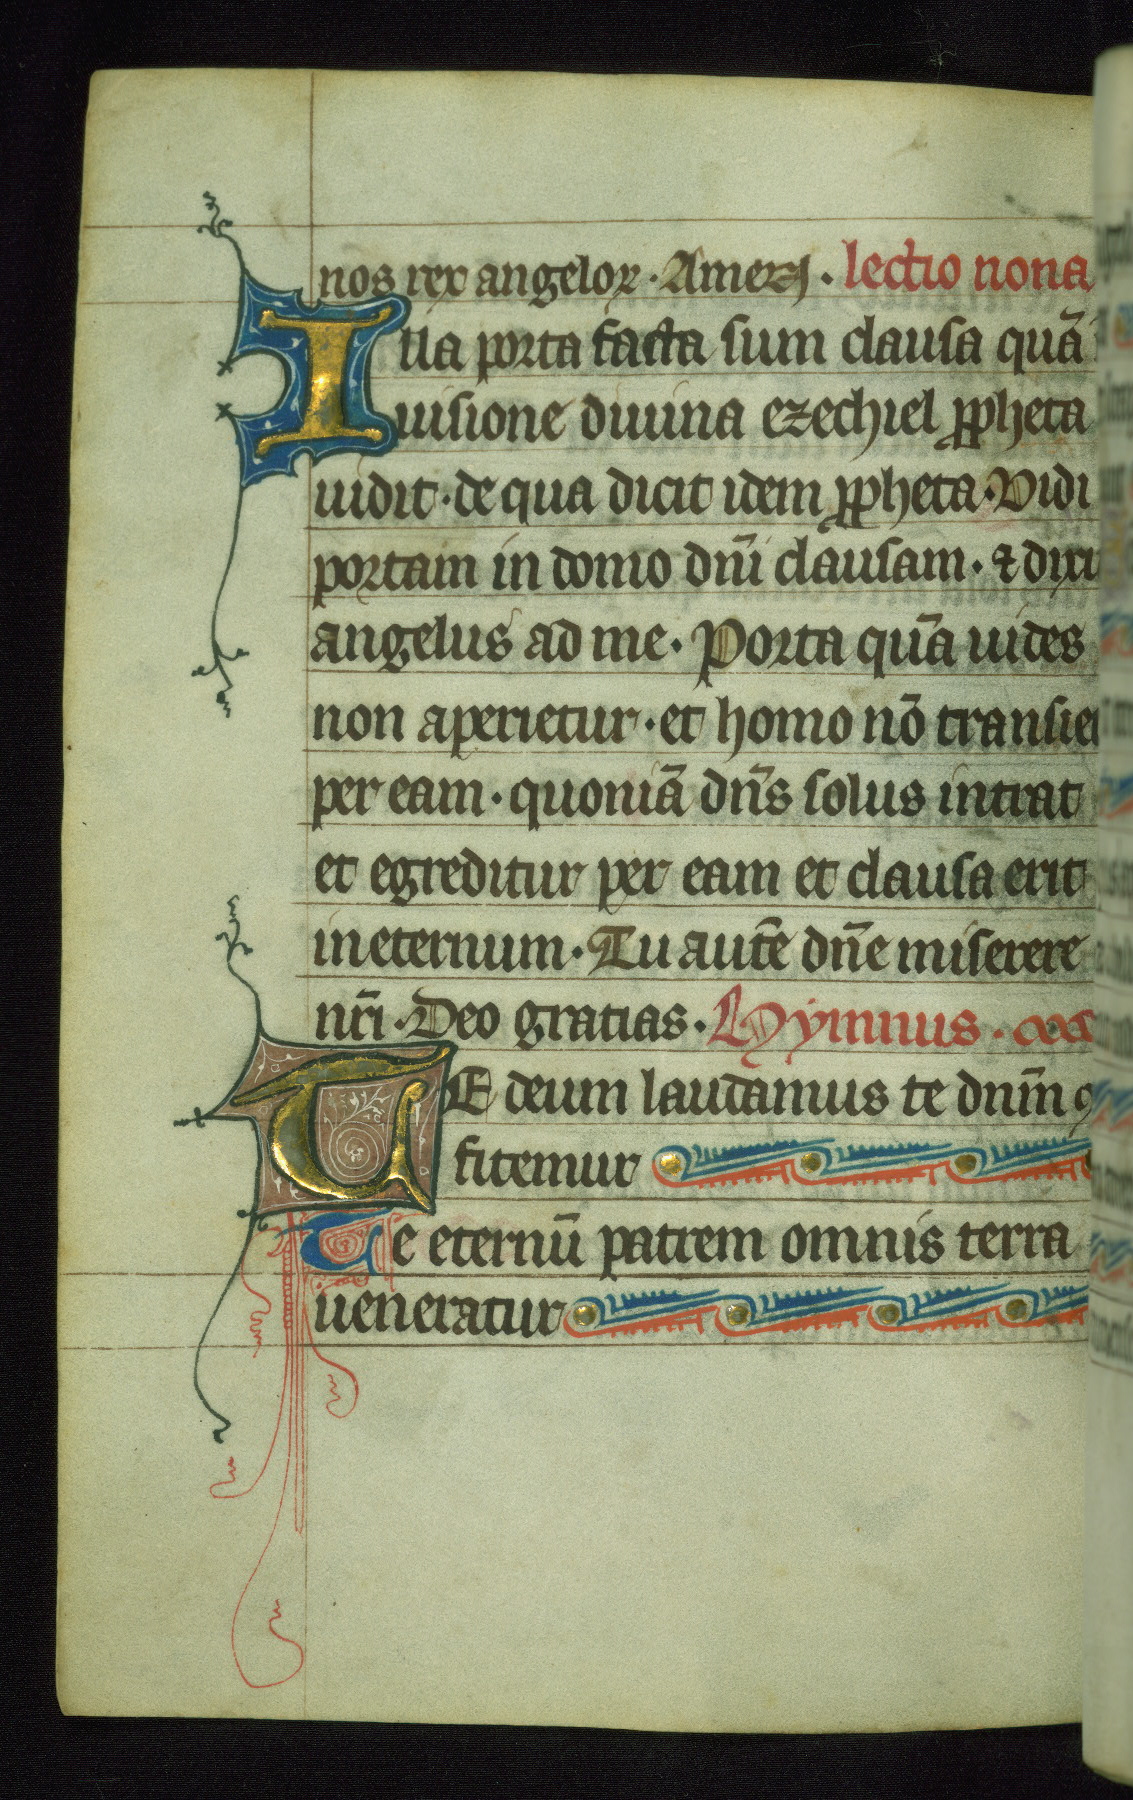 nos rex angeloꝝ · Amen · lectio nona
Illa porta facta sum clausa quā
uisione diuina ezechiel ꝓpheta
uidit · de qua dicit idem ꝓpheta · Vidi
portam in domo dn̄i clausam · ⁊ dixit
angelus ad me · Porta quā uides
non aperietur · et homo nō transiet
per eam · quoniā dn̄s solus intrat
et egreditur per eam et clausa erit
ineternum · Tu autē dn̄e miserere
nr̄i · Deo gratias · Hymnus ·
TE deum laudamus te dnm̄ ꝯ
fitemur
Te eternū patrem omnis terra
ueneratur